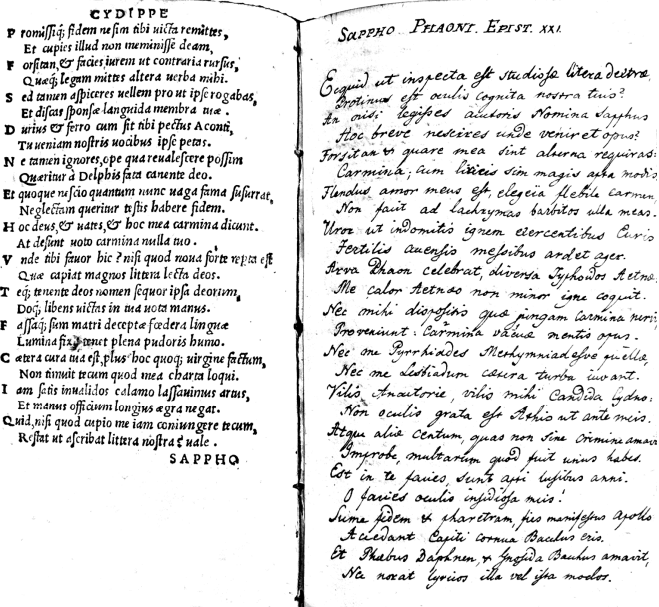 CYDIPPE
P romissiq; fidem ne sim tibi victa remittes,
Et cupies illud non meminisse deam,
F orsitan, & facies iurem ut contraria rursus,
Quæq; legam mittes altera uerba mihi.
S ed tamen aspiceres uellem pro ut ipse rogabas,
Et discas sponsæ languida membra tuæ.
D urius & ferro cum sit tibi pectus Aconti,
Tu ueniam nostris uocibus ipse petas.
N e tamen ignores, ope qua reualescere possim
Quæritur à Delphis fata canente deo.
Et quoque nescio quantum nunc uaga fama susurrat,
Neglectam queritur testis habere fidem.
H oc deus, & uates, & hoc mea carmina dicunt.
At desunt uoto carmina nulla tuo.
V nde tibi fauor hic? nisi quod noua forte reperta est
Quæ capiat magnos littera lecta deos.
T eq; tenente deos nomen sequor ipsa deorum,
Doq; libens uictas in tua uota manus.
F assaq; sum matri deceptæ fœdera linguæ
Lumina fixa tenet plena pudoris humo.
C ætera cura tua est, plus hoc quoq; uirgine factum,
Non timuit tecum quod mea charta loqui.
I am satis inualidos calamo lassauimus artus,
Et manus officium longius ægra negat.
Quid, nisi quod cupio me iam coniungere tecum,
Restat ut ascribat littera nostra? uale.
SAPPHO
SAPPHO PHAONI. EPIST. XXI.
Ecquid ut inspecta est studiosæ litera dextræ,
Protinus est oculis cognita nostra tuis?
An nisi legisses autoris Nomina Sapphus
Hoc breve nescires unde veniret opus?
Forsitan & quare mea sint alterna requiras
Carmina; cum liricis sim magis apta modis,
Flendus amor meus est, elegeia flebile carmen,
Non facit ad lachrymas barbitos ulla meas.
Uror ut indomitis ignem exercentibus Euris
Fertilis accensis messibus ardet ager.
Arva Phaon celebrat, diversa Typhoidos Aetnæ,
Me calor Aetnæo non minor igne coquit.
Nec mihi dispositis quæ jungam carmina nervis
Proveniunt: Carmina vacuæ mentis opus.
Nec me Pyrrhiades Methymniadesve puellæ,
Nec me Lesbiadum cætera turba iuvant.
Vilis Anactorie, vilis mihi Candida Cydno:
Non oculis grata est Athis ut ante meis.
Atque aliæ centum, quas non sine crimine amavi
Improbe, multarum quod fuit unus habes.
Est in te facies, sunt apti lusibus anni.
O facies oculis insidiosa meis!
Sume fidem & pharetram, fies manifestus Apollo
Accedant Capiti cornua Bacchus eris.
Et Phœbus Daphnen, & Gnosida Bacchus amavit,
Nec norat lyricos illa vel ista modos.